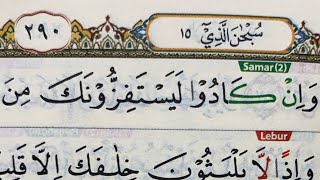 سُبْحٰنَ الَّذِيْٓ ١٥
٢٩٠
Samar (2)
وَاِنْ كَادُوْا لَيَسْتَفِزُّوْنَكَ مِنَ
Lebur
وَاِذًا لَّا يَلْبَثُوْنَ خِلٰفَكَ اِلَّا قَلِيْ